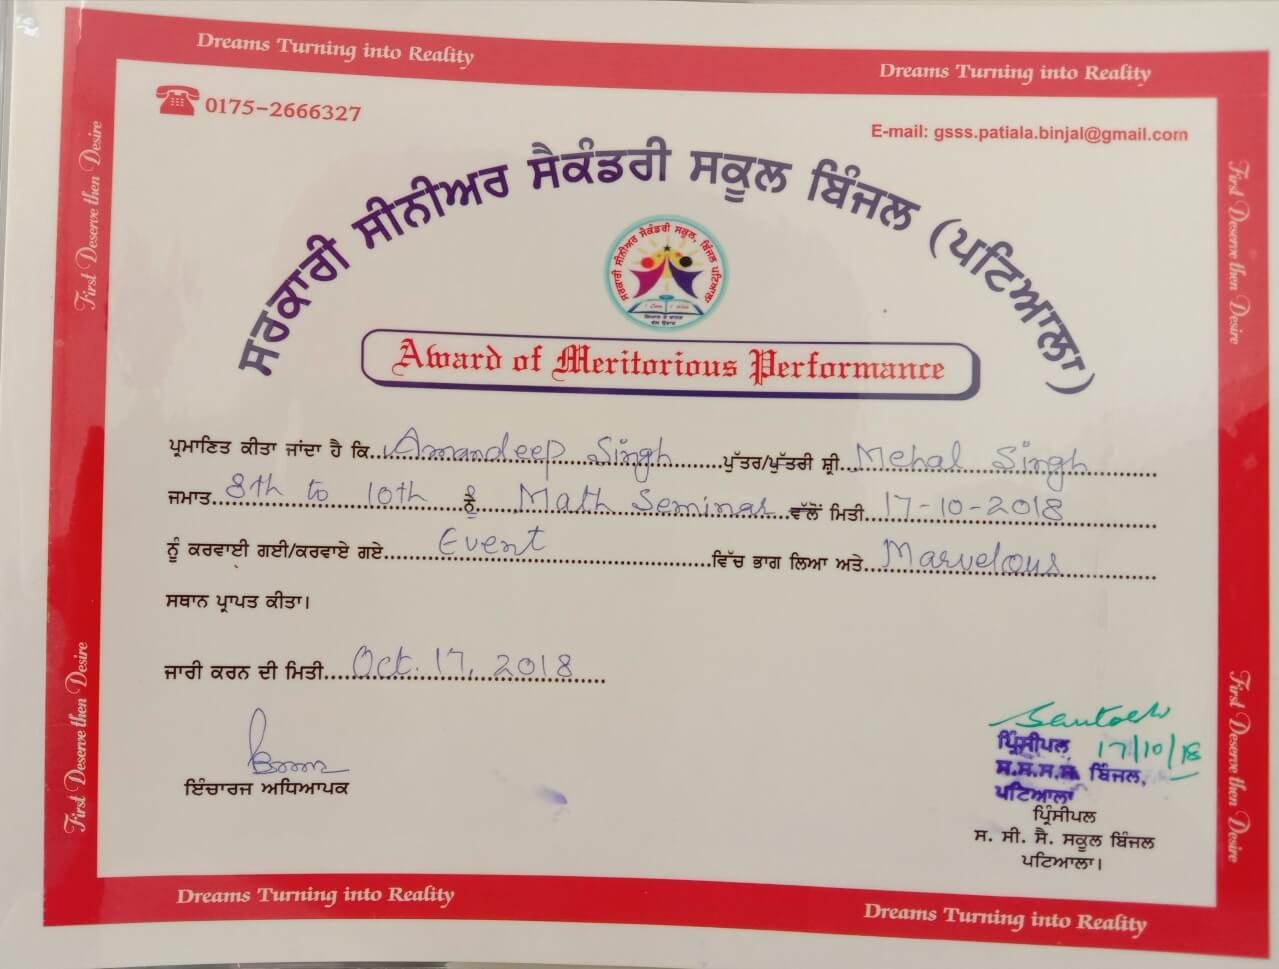 Dreams Turning into Reality
Dreams Turning into Reality
0175-2666327
E-mail: gsss.patiala.binjal@gmail.com
ਸਰਕਾਰੀ ਸੀਨੀਅਰ ਸੈਕੰਡਰੀ ਸਕੂਲ ਬਿੰਜਲ (ਪਟਿਆਲਾ)
ਸਰਕਾਰੀ ਸੀਨੀਅਰ ਸੈਕੰਡਰੀ ਸਕੂਲ, ਬਿੰਜਲ ਪਟਿਆਲਾ
Award of Meritorious Performance
ਪ੍ਰਮਾਣਿਤ ਕੀਤਾ ਜਾਂਦਾ ਹੈ ਕਿ Amandeep Singh ਪੁੱਤਰ/ਪੁੱਤਰੀ ਸ਼੍ਰੀ Mehal Singh
ਜਮਾਤ 8th to 10th ਨੇ Math Seminar ਵੱਲੋਂ ਮਿਤੀ 17-10-2018
ਨੂੰ ਕਰਵਾਈ ਗਈ/ਕਰਵਾਏ ਗਏ Event ਵਿੱਚ ਭਾਗ ਲਿਆ ਅਤੇ Marvelous
ਸਥਾਨ ਪ੍ਰਾਪਤ ਕੀਤਾ।
ਜਾਰੀ ਕਰਨ ਦੀ ਮਿਤੀ Oct. 17, 2018
ਇੰਚਾਰਜ ਅਧਿਆਪਕ
ਪ੍ਰਿੰਸੀਪਲ 17/10/18
ਸ.ਸ.ਸ.ਸ. ਬਿੰਜਲ,
ਪਟਿਆਲਾ
ਪ੍ਰਿੰਸੀਪਲ
ਸ. ਸੀ. ਸੈ. ਸਕੂਲ ਬਿੰਜਲ
ਪਟਿਆਲਾ।
First Deserve then Desire
First Deserve then Desire
First Deserve then Desire
First Deserve then Desire
Dreams Turning into Reality
Dreams Turning into Reality